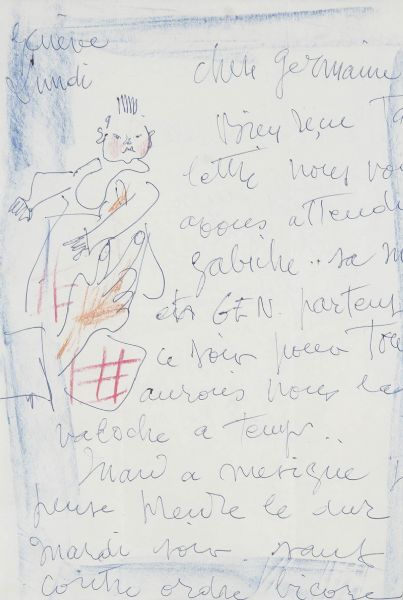 Genève
Lundi
chere Germaine
Bien reçu Ta
lettre nous vou
avons attendu
gabiche.. sa m
et GEN. partent
ce soir pour Tou
aurons nous la
valoche a temps..
Mard a mexique
pense prendre le
mardi soir. sauf
contre ordre bicoze